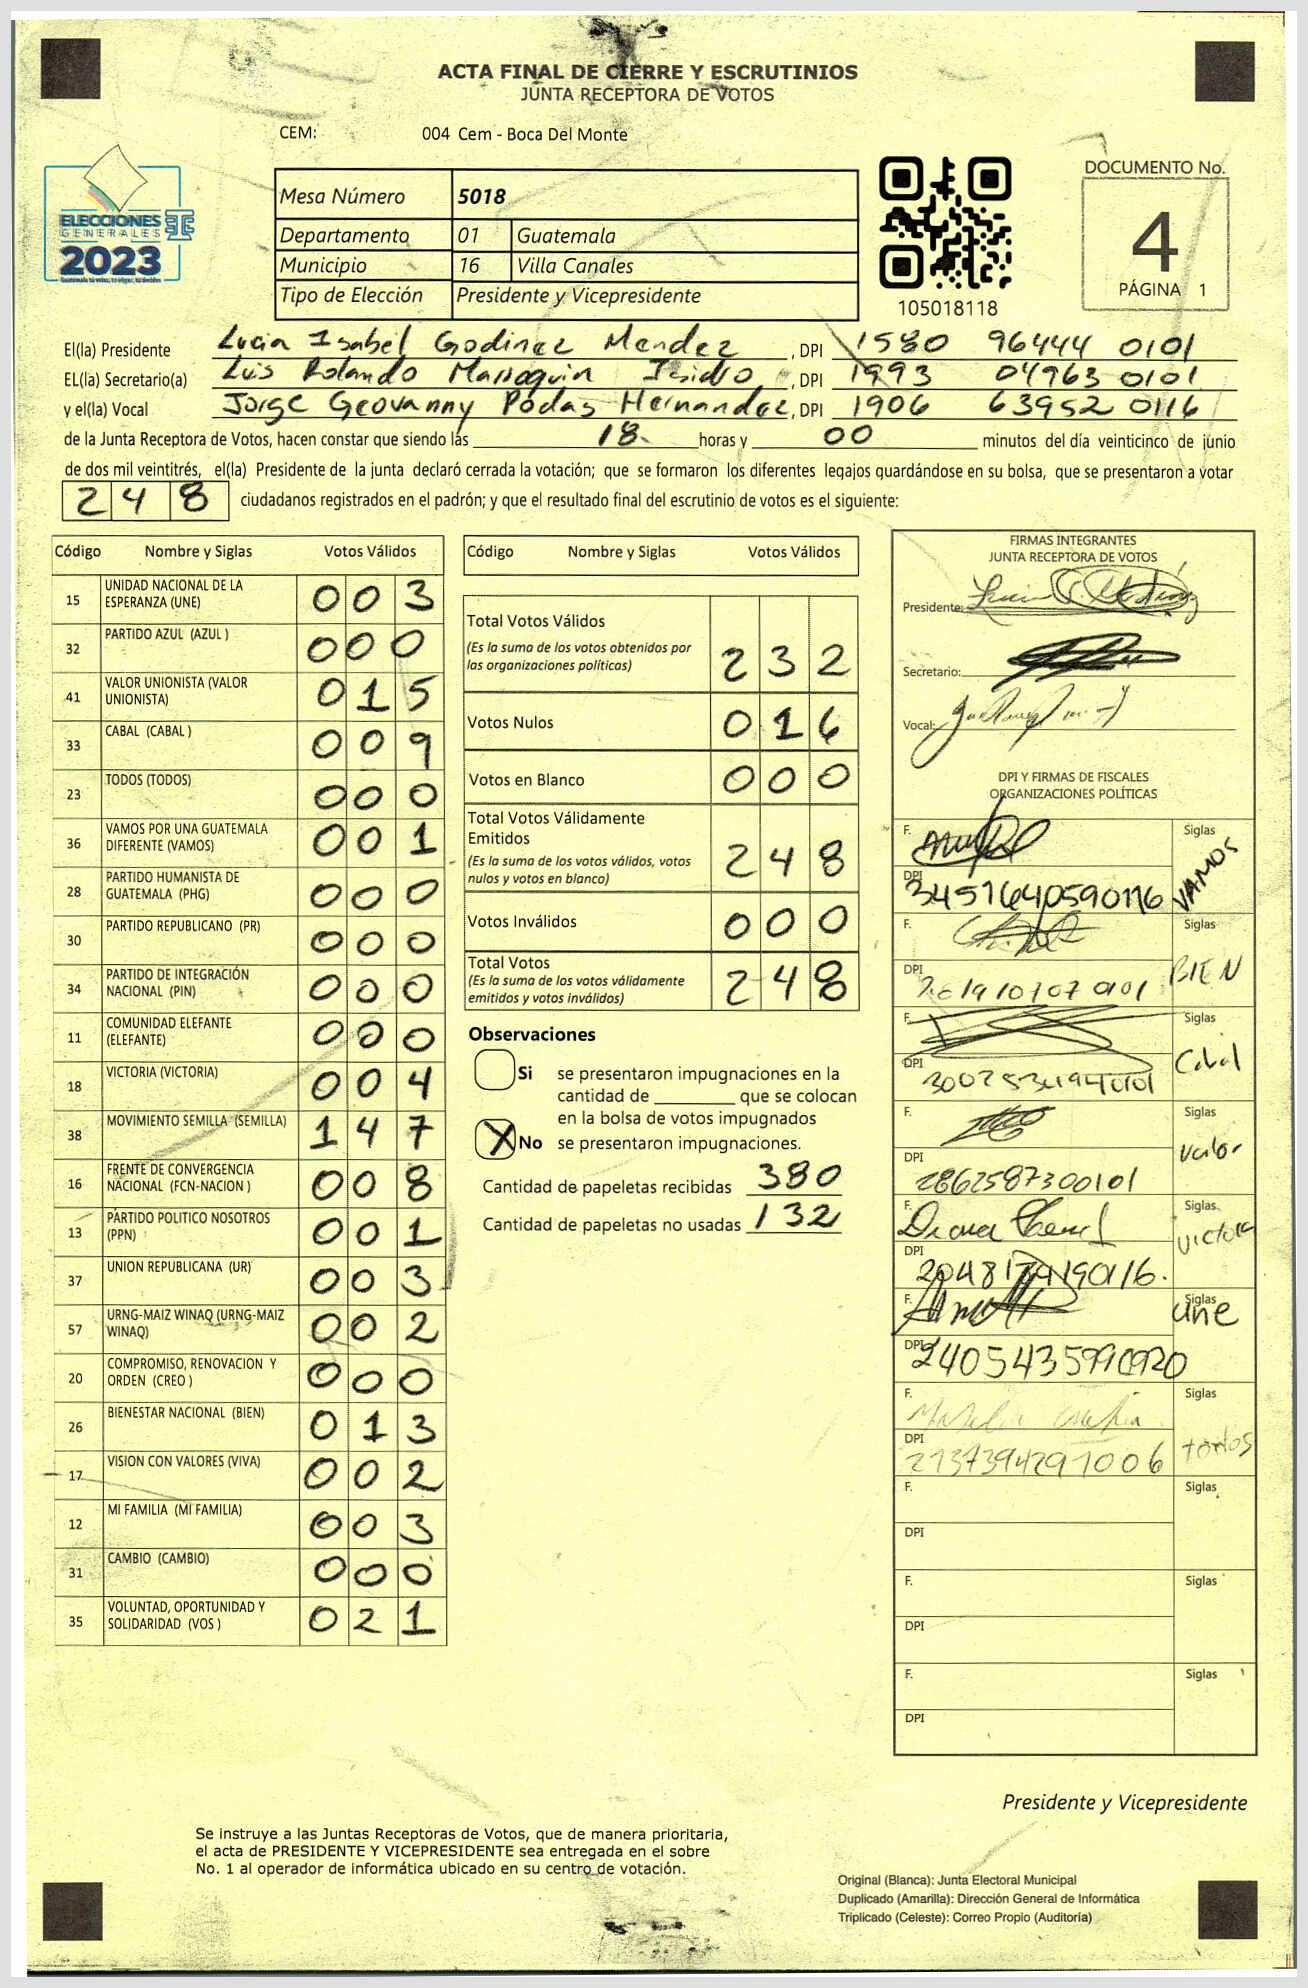 ACTA FINAL DE CIERRE Y ESCRUTINIOS
JUNTA RECEPTORA DE VOTOS
CEM: 004 Cem - Boca Del Monte
ELECCIONES
GENERALES
2023
Mesa Número 5018
Departamento 01 Guatemala
Municipio 16 Villa Canales
Tipo de Elección Presidente y Vicepresidente
105018118
DOCUMENTO No.
4
PÁGINA 1
El(la) Presidente Lucia Isabel Godinez Mendez, DPI 1580 96444 0101
EL(la) Secretario(a) Luis Rolando Marroquin Isidro, DPI 1993 04963 0101
y el(la) Vocal Jorge Geovanny Podas Hernandez, DPI 1906 63952 0116
de la Junta Receptora de Votos, hacen constar que siendo las 18 horas y 00 minutos del día veinticinco de junio
de dos mil veintitrés, el(la) Presidente de la junta declaró cerrada la votación; que se formaron los diferentes legajos guardándose en su bolsa, que se presentaron a votar
248 ciudadanos registrados en el padrón; y que el resultado final del escrutinio de votos es el siguiente:
Código Nombre y Siglas Votos Válidos
15 UNIDAD NACIONAL DE LA ESPERANZA (UNE) 003
32 PARTIDO AZUL (AZUL ) 000
41 VALOR UNIONISTA (VALOR UNIONISTA) 015
33 CABAL (CABAL ) 009
23 TODOS (TODOS) 000
36 VAMOS POR UNA GUATEMALA DIFERENTE (VAMOS) 001
28 PARTIDO HUMANISTA DE GUATEMALA (PHG) 000
30 PARTIDO REPUBLICANO (PR) 000
34 PARTIDO DE INTEGRACIÓN NACIONAL (PIN) 000
11 COMUNIDAD ELEFANTE (ELEFANTE) 000
18 VICTORIA (VICTORIA) 004
38 MOVIMIENTO SEMILLA (SEMILLA) 147
16 FRENTE DE CONVERGENCIA NACIONAL (FCN-NACION ) 008
13 PARTIDO POLITICO NOSOTROS (PPN) 001
37 UNION REPUBLICANA (UR) 003
57 URNG-MAIZ WINAQ (URNG-MAIZ WINAQ) 002
20 COMPROMISO, RENOVACION Y ORDEN (CREO ) 000
26 BIENESTAR NACIONAL (BIEN) 013
17 VISION CON VALORES (VIVA) 002
12 MI FAMILIA (MI FAMILIA) 003
31 CAMBIO (CAMBIO) 000
35 VOLUNTAD, OPORTUNIDAD Y SOLIDARIDAD (VOS ) 021
Código Nombre y Siglas Votos Válidos
Total Votos Válidos
(Es la suma de los votos obtenidos por
las organizaciones políticas) 232
Votos Nulos 016
Votos en Blanco 000
Total Votos Válidamente
Emitidos
(Es la suma de los votos válidos, votos
nulos y votos en blanco) 248
Votos Inválidos 000
Total Votos
(Es la suma de los votos válidamente
emitidos y votos inválidos) 248
Observaciones
Si se presentaron impugnaciones en la
cantidad de ________ que se colocan
en la bolsa de votos impugnados
X No se presentaron impugnaciones.
Cantidad de papeletas recibidas 380
Cantidad de papeletas no usadas 132
FIRMAS INTEGRANTES
JUNTA RECEPTORA DE VOTOS
Presidente:
Secretario:
Vocal:
DPI Y FIRMAS DE FISCALES
ORGANIZACIONES POLÍTICAS
F. Siglas VAMOS
DPI
F. Siglas BIEN
DPI
F. Siglas Cabal
DPI
F. Siglas Valor
DPI 2862587300101
F. Siglas Victoria
DPI
F. Siglas une
DPI
F. Siglas todos
DPI 2137394291006
F. Siglas
DPI
F. Siglas
DPI
F. Siglas
DPI
Presidente y Vicepresidente
Se instruye a las Juntas Receptoras de Votos, que de manera prioritaria,
el acta de PRESIDENTE Y VICEPRESIDENTE sea entregada en el sobre
No. 1 al operador de informática ubicado en su centro de votación.
Original (Blanca): Junta Electoral Municipal
Duplicado (Amarilla): Dirección General de Informática
Triplicado (Celeste): Correo Propio (Auditoría)